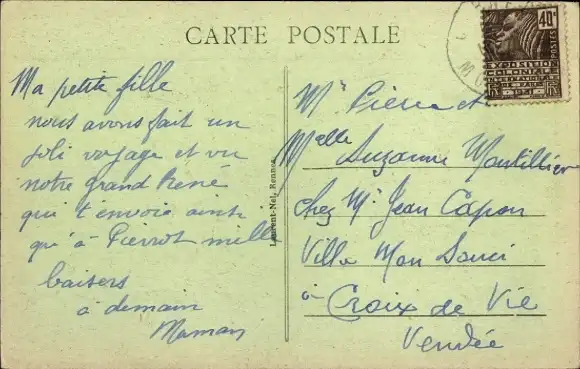 CARTE POSTALE
Ma petite fille
nous avons fait un
joli voyage et vu
notre grand René
qui t'envoie ainsi
qu'à Pierrot mille
baisers
à demain
Maman
Laurent-Nel, Rennes
Mr Pierre et
Melle Suzanne Montillier
chez Mr Jean Capon
Villa Mon Souci
à Croix de Vie
Vendée
40c
POSTES
EXPOSITION
COLONIALE
INTERNATIONALE
DE PARIS
1931